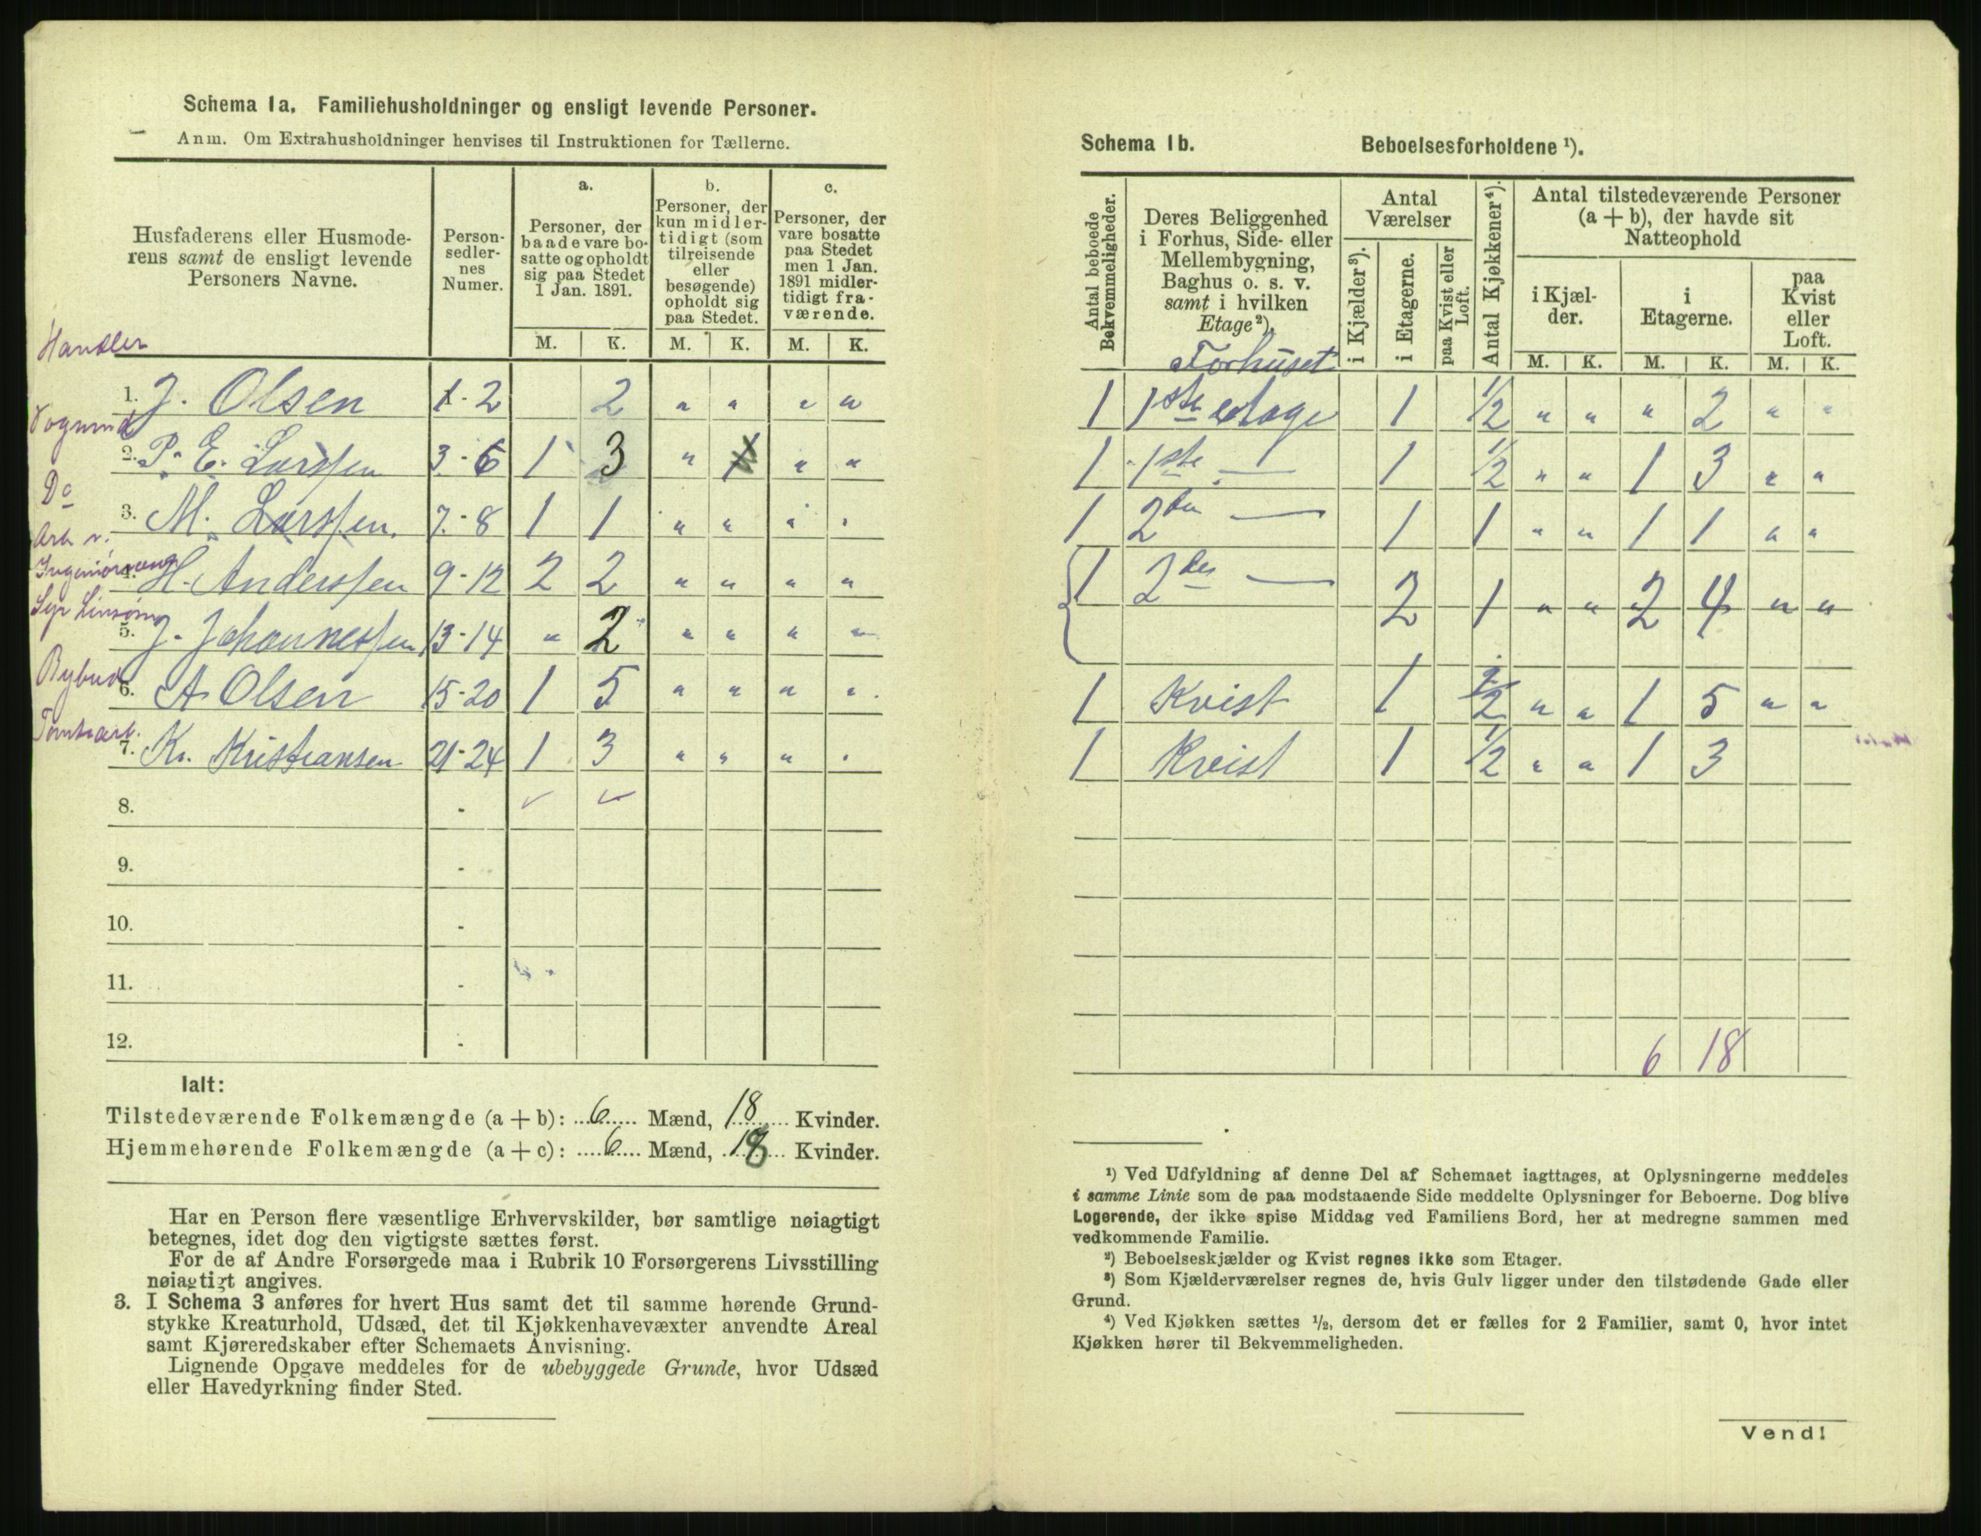 Schema 1a. Familiehusholdninger og ensligt levende Personer.
Anm. Om Extrahusholdninger henvises til Instruktionen for Tællerne.
Husfaderens eller Husmode-
rens samt de ensligt levende
Personers Navne.
Person-
sedler-
nes
Numer.
a.
Personer, der
baade vare bo-
satte og opholdt
sig paa Stedet
1 Jan. 1891.
b.
Personer, der
kun midler-
tidigt (som
tilreisende
eller
besøgende)
opholdt sig
paa Stedet.
c.
Personer, der
vare bosatte
paa Stedet
men 1 Jan.
1891 midler-
tidigt fra-
værende.
M. K. M. K. M. K.
Handler
1. J. Olsen 1-2 2 " " " "
Vognmd
2. P. E. Larssen 3-6 1 3 " 1 " "
Do
3. M. Larssen. 7-8 1 1 " " " "
Arb v.
Ingeniørvæng
4. H. Anderssen 9-12 2 2 " " " "
Syr Linsøm
5. J. Johannessen 13-14 " 2 " " " "
Bybud
6. A Olsen 15-20 1 5 " " " "
Tomtearb.
7. Kr. Kristiansen 21-24 1 3 " " " "
8. -
9. -
10. -
11. -
12. -
Ialt:
Tilstedeværende Folkemængde (a + b): 6 Mænd, 18 Kvinder.
Hjemmehørende Folkemængde (a + c): 6 Mænd, 18 Kvinder.
Har en Person flere væsentlige Erhvervskilder, bør samtlige nøiagtigt
betegnes, idet dog den vigtigste sættes først.
For de af Andre Forsørgede maa i Rubrik 10 Forsørgerens Livsstilling
nøiagtigt angives.
3. I Schema 3 anføres for hvert Hus samt det til samme hørende Grund-
stykke Kreaturhold, Udsæd, det til Kjøkkenhavevæxter anvendte Areal
samt Kjøreredskaber efter Schemaets Anvisning.
Lignende Opgave meddeles for de ubebyggede Grunde, hvor Udsæd
eller Havedyrkning finder Sted.
Schema 1b. Beboelsesforholdene ¹).
Antal beboede
Bekvemmeligheder.
Deres Beliggenhed
i Forhus, Side- eller
Mellembygning,
Baghus o. s. v.
samt i hvilken
Etage ²).
Antal
Værelser
i Kjælder ³).
i Etagerne.
paa Kvist eller
Loft.
Antal Kjøkkener ⁴).
Antal tilstedeværende Personer
(a + b), der havde sit
Natteophold
i Kjæl-
der.
i
Etagerne.
paa
Kvist
eller
Loft.
M. K. M. K. M. K.
Forhuset
1 1ste etage 1 1/2 " " " 2 " "
1 1ste — 1 1/2 " " 1 3 " "
1 2den — 1 1 " " 1 1 " "
1 2den — 2 1 " " 2 4 " "
1 Kvist 1 1/2 " " 1 5 " "
1 Kvist 1 1/2 " " 1 3
6 18
¹) Ved Udfyldning af denne Del af Schemaet iagttages, at Oplysningerne meddeles
i samme Linie som de paa modstaaende Side meddelte Oplysninger for Beboerne. Dog blive
Logerende, der ikke spise Middag ved Familiens Bord, her at medregne sammen med
vedkommende Familie.
²) Beboelseskjælder og Kvist regnes ikke som Etager.
³) Som Kjælderværelser regnes de, hvis Gulv ligger under den tilstødende Gade eller
Grund.
⁴) Ved Kjøkken sættes ½, dersom det er fælles for 2 Familier, samt 0, hvor intet
Kjøkken hører til Bekvemmeligheden.
Vend!